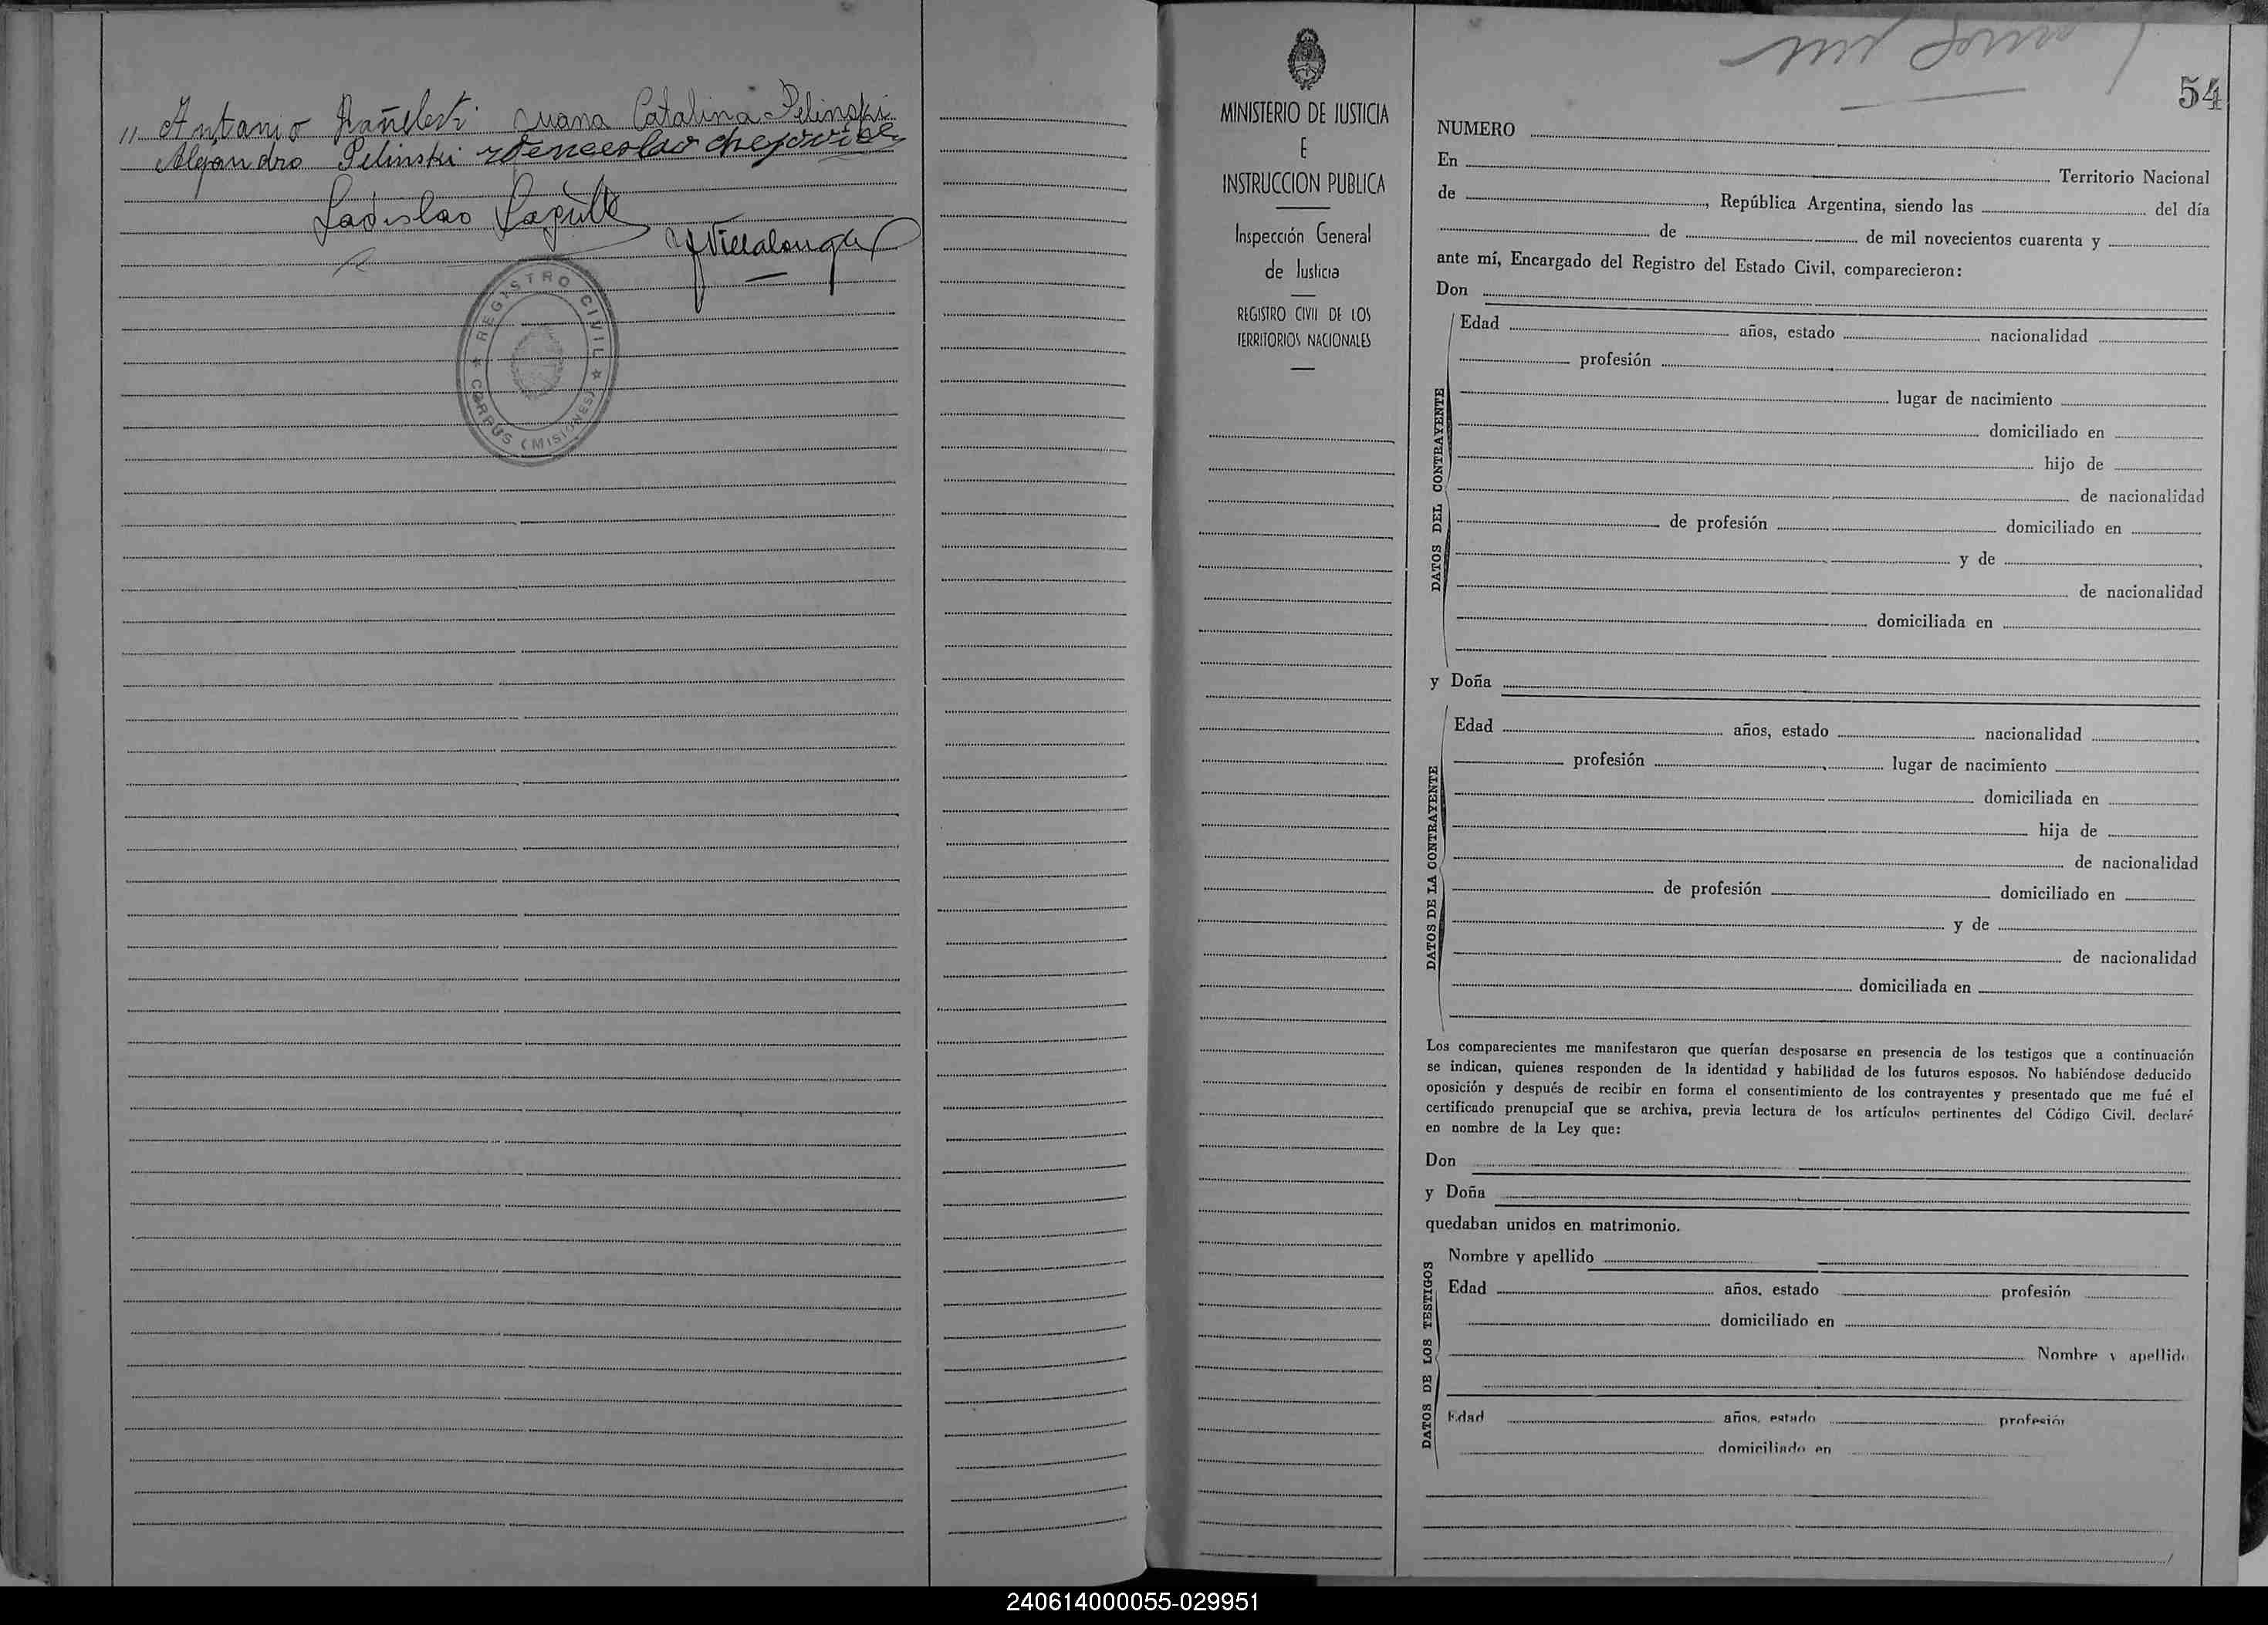 Antonio
Juana Catalina Pelinski
Alejandro Pelinski Wenceslao
Ladislao
Villalonga
REGISTRO CIVIL
CORPUS (MISIONES)
MINISTERIO DE JUSTICIA
E
INSTRUCCION PUBLICA
Inspección General
de Justicia
REGISTRO CIVIL DE LOS
TERRITORIOS NACIONALES
54
NUMERO
En Territorio Nacional
de , República Argentina, siendo las del día
de de mil novecientos cuarenta y
ante mí, Encargado del Registro del Estado Civil, comparecieron:
Don
DATOS DEL CONTRAYENTE
Edad años, estado nacionalidad
profesión
lugar de nacimiento
domiciliado en
hijo de
de nacionalidad
de profesión domiciliado en
y de
de nacionalidad
domiciliada en
y Doña
DATOS DE LA CONTRAYENTE
Edad años, estado nacionalidad
profesión lugar de nacimiento
domiciliada en
hija de
de nacionalidad
de profesión domiciliado en
y de
de nacionalidad
domiciliada en
Los comparecientes me manifestaron que querían desposarse en presencia de los testigos que a continuación
se indican, quienes responden de la identidad y habilidad de los futuros esposos. No habiéndose deducido
oposición y después de recibir en forma el consentimiento de los contrayentes y presentado que me fué el
certificado prenupcial que se archiva, previa lectura de los artículos pertinentes del Código Civil, declaré
en nombre de la Ley que:
Don
y Doña
quedaban unidos en matrimonio.
DATOS DE LOS TESTIGOS
Nombre y apellido
Edad años, estado profesión
domiciliado en
Nombre y apellido
Edad años, estado profesión
domiciliado en
240614000055-029951